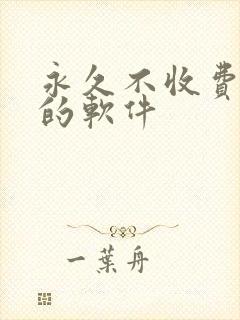 永久不收費
的軟件
一葉舟